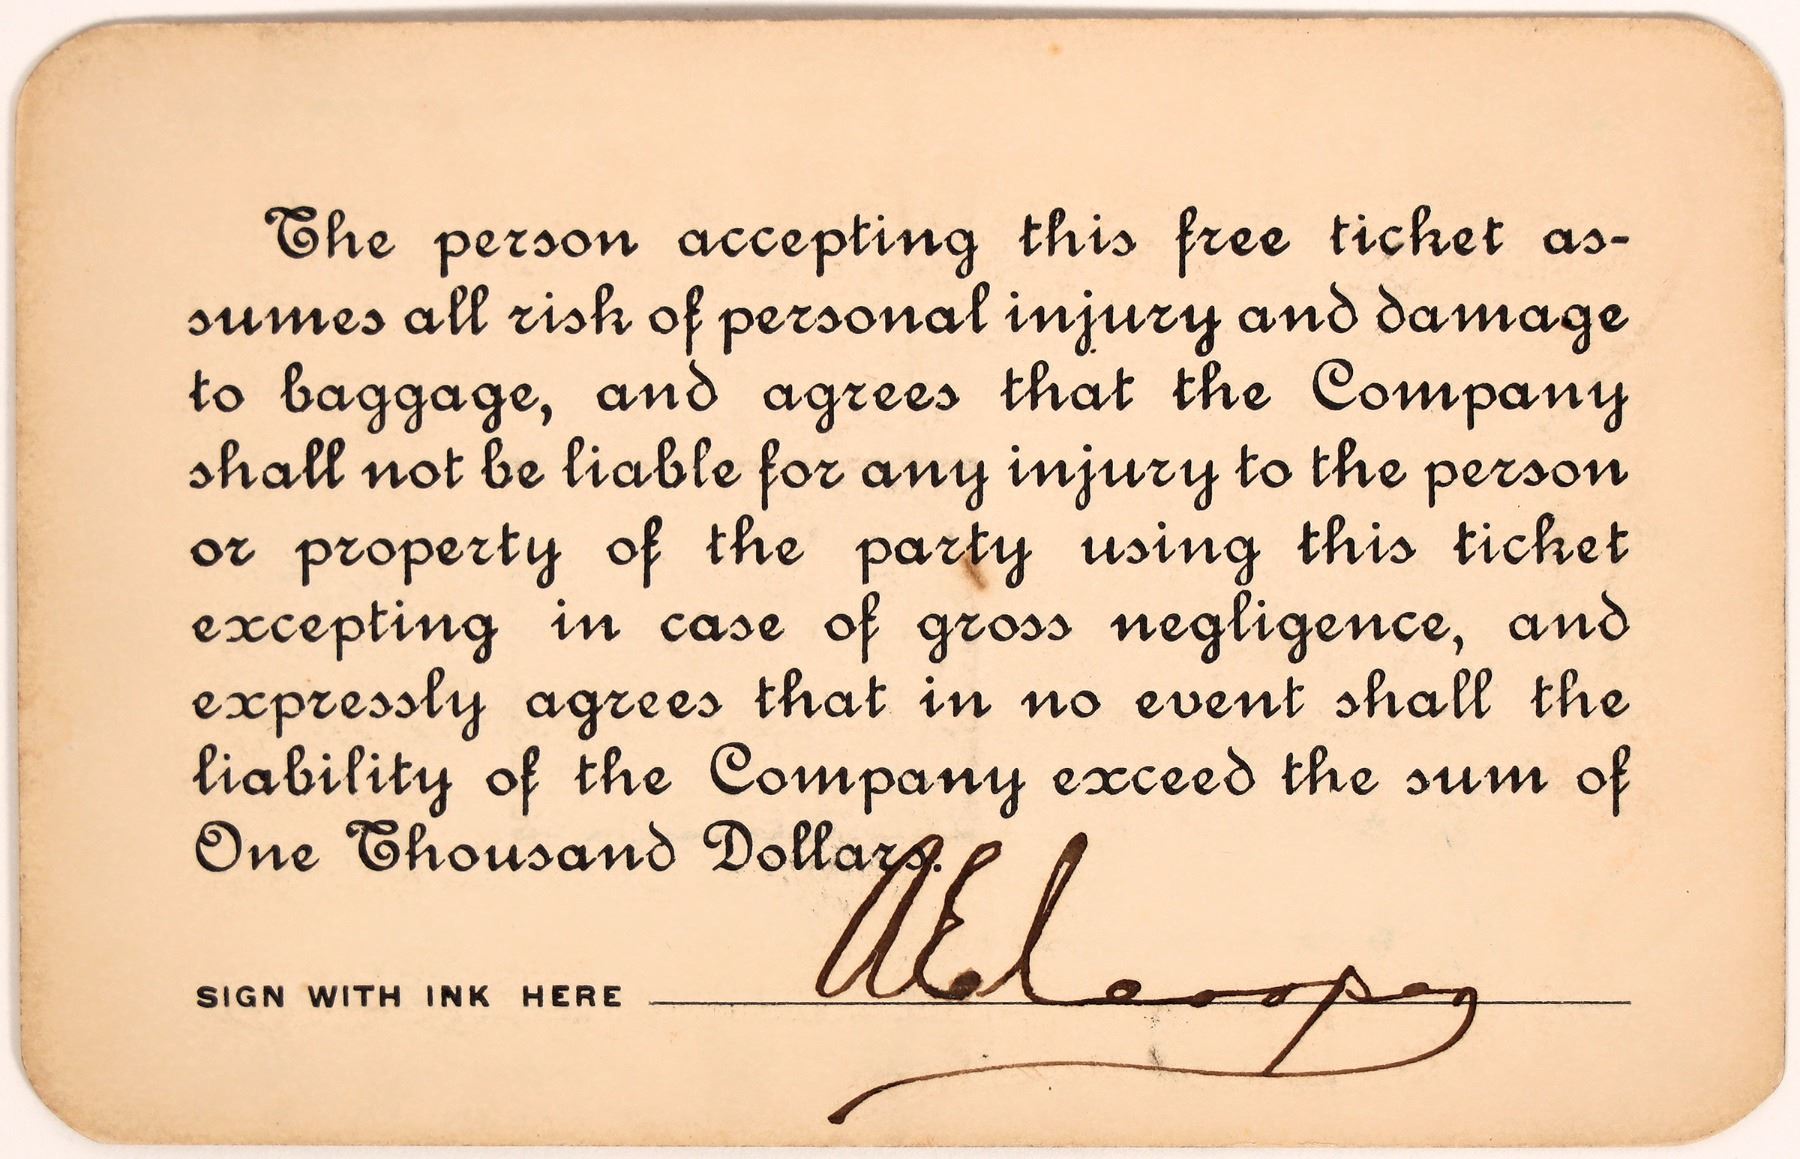 The person accepting this free ticket as-
sumes all risk of personal injury and damage
to baggage, and agrees that the Company
shall not be liable for any injury to the person
or property of the party using this ticket
excepting in case of gross negligence, and
expressly agrees that in no event shall the
liability of the Company exceed the sum of
One Thousand Dollars.
SIGN WITH INK HERE